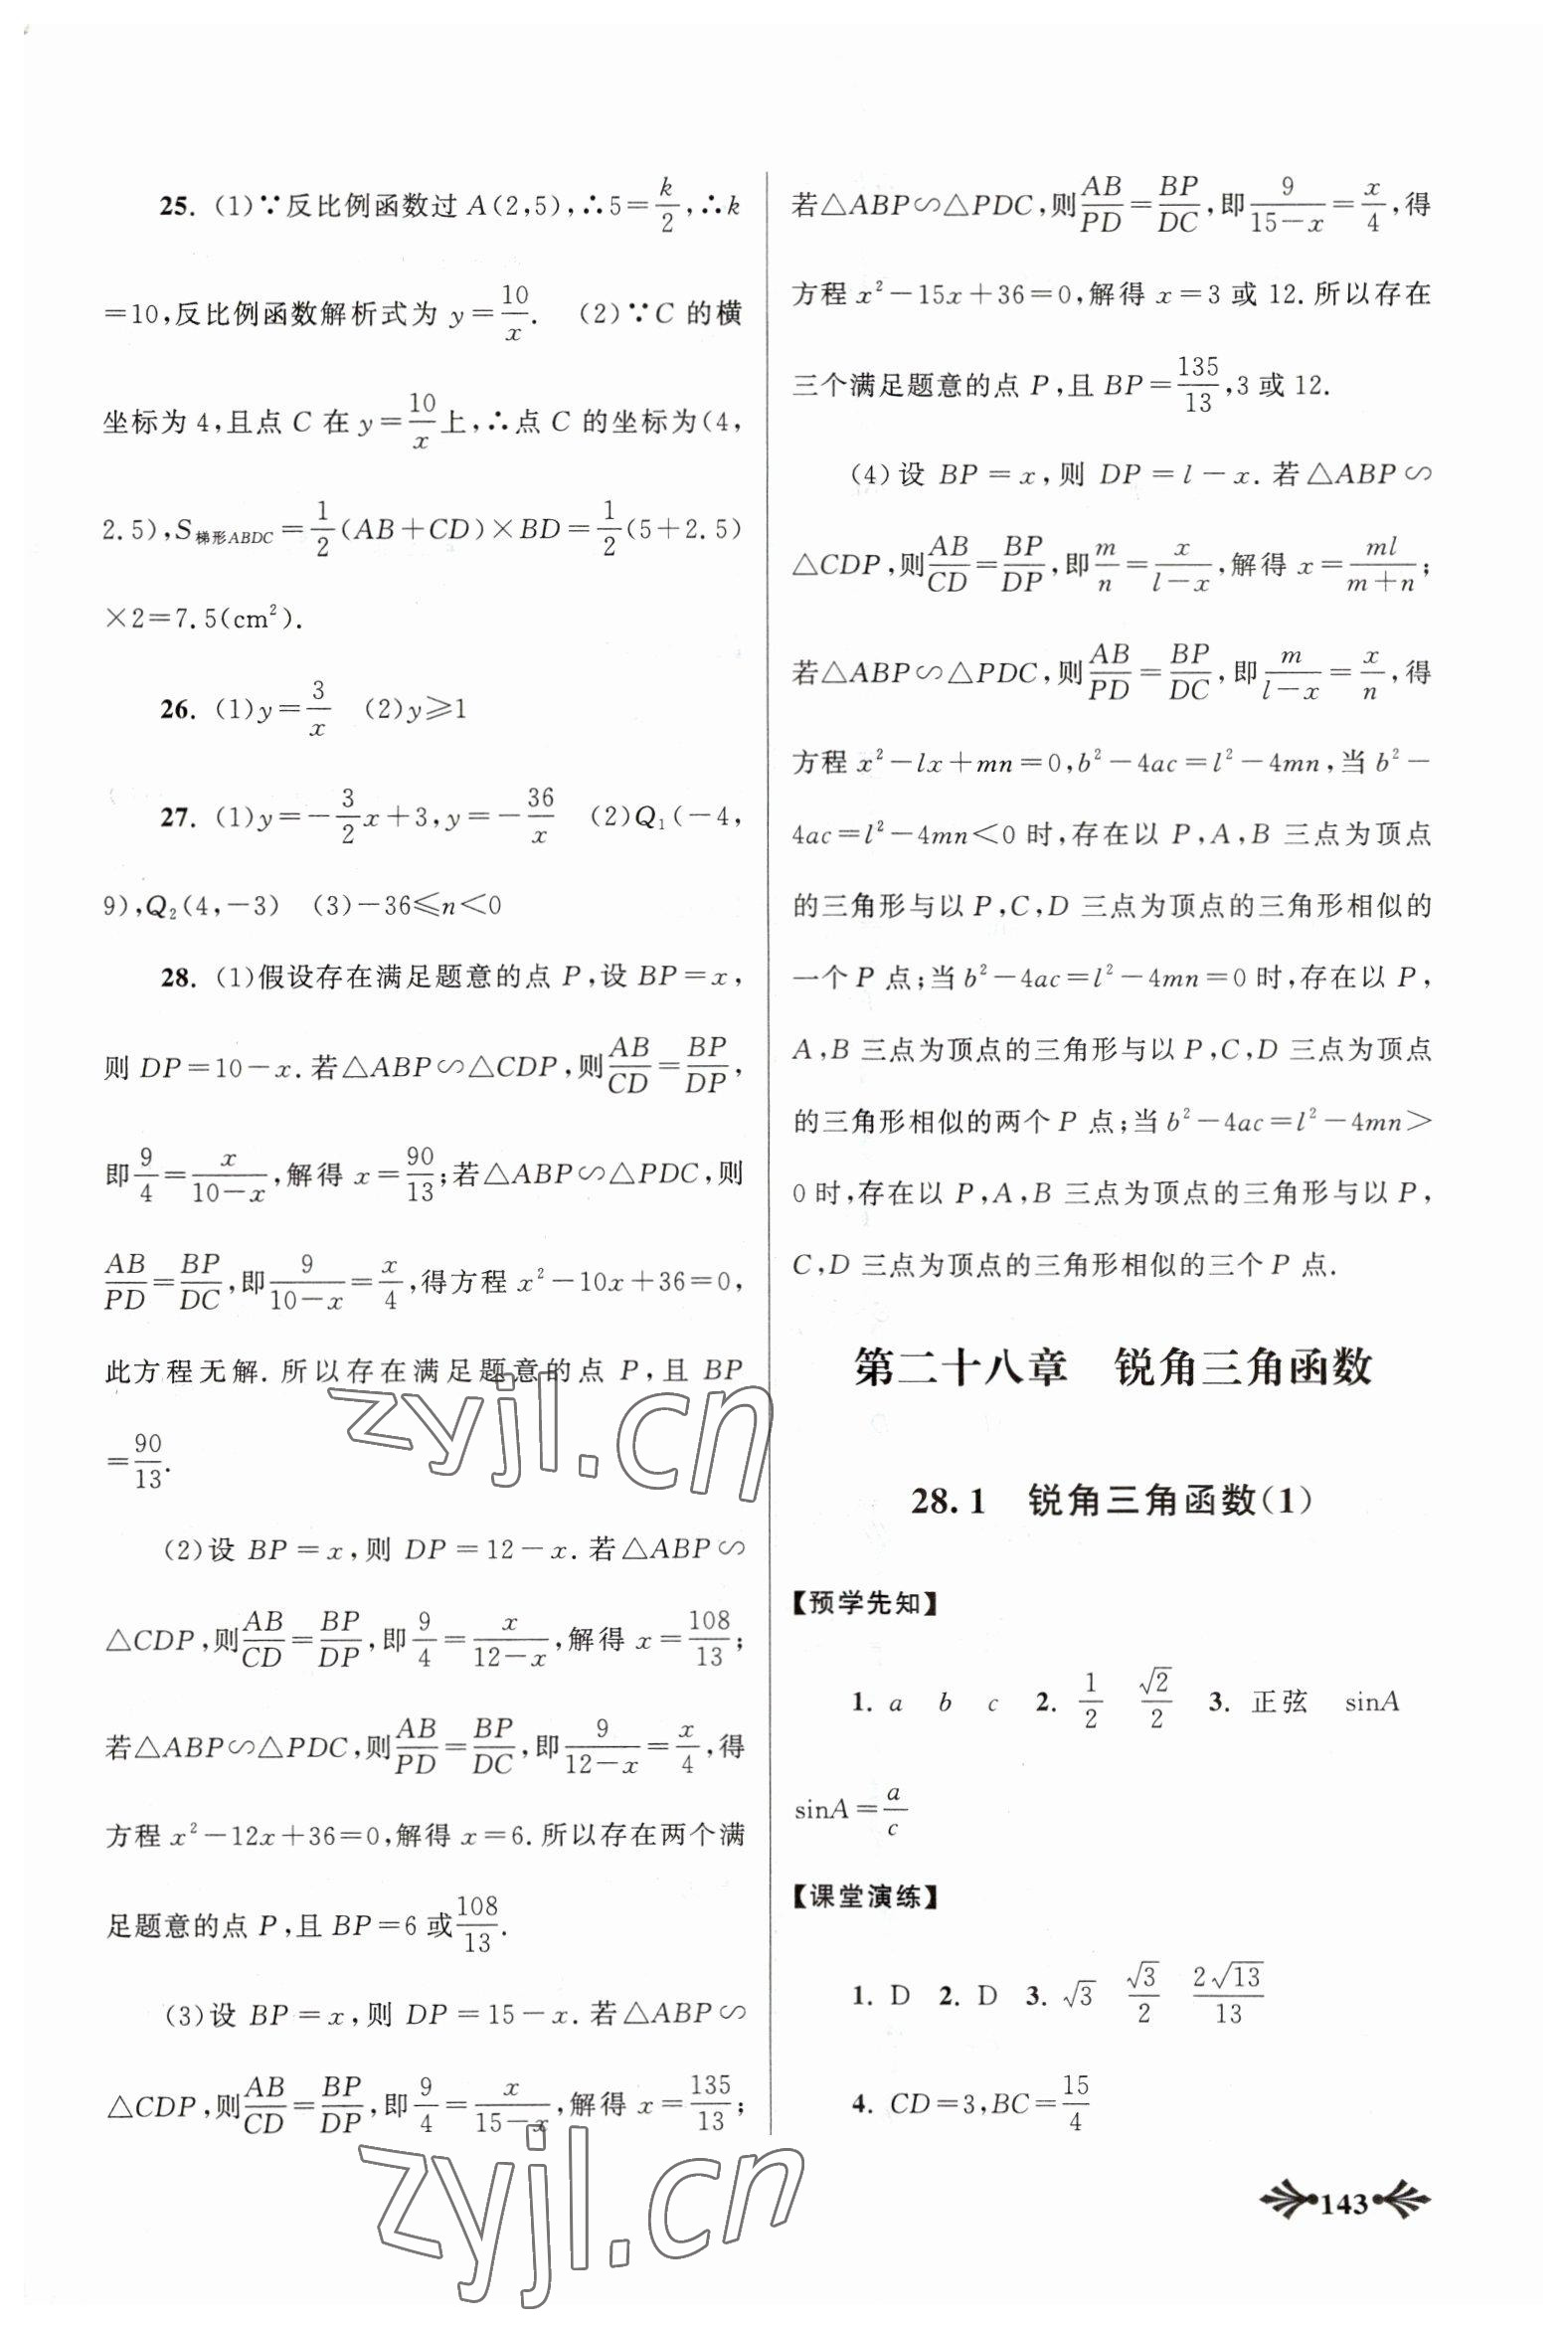 25. (1)∵反比例函数过 A(2,5),∴5=k/2,∴k
=10,反比例函数解析式为 y=10/x. (2)∵C 的横
坐标为 4,且点 C 在 y=10/x上,∴点 C 的坐标为(4,
2.5),S梯形ABDC=1/2(AB+CD)×BD=1/2(5+2.5)
×2=7.5(cm²).
26. (1)y=3/x (2)y⩾1
27. (1)y=-3/2x+3,y=-36/x (2)Q₁(-4,
9),Q₂(4,-3) (3)-36⩽n<0
28. (1)假设存在满足题意的点 P,设 BP=x,
则 DP=10-x.若△ABP∽△CDP,则AB/CD=BP/DP,
即9/4=x/(10-x),解得 x=90/13;若△ABP∽△PDC,则
AB/PD=BP/DC,即9/(10-x)=x/4,得方程 x²-10x+36=0,
此方程无解.所以存在满足题意的点 P,且 BP
=90/13.
(2)设 BP=x,则 DP=12-x.若△ABP∽
△CDP,则AB/CD=BP/DP,即9/4=x/(12-x),解得 x=108/13;
若△ABP∽△PDC,则AB/PD=BP/DC,即9/(12-x)=x/4,得
方程 x²-12x+36=0,解得 x=6.所以存在两个满
足题意的点 P,且 BP=6 或108/13.
(3)设 BP=x,则 DP=15-x.若△ABP∽
△CDP,则AB/CD=BP/DP,即9/4=x/(15-x),解得 x=135/13;
若△ABP∽△PDC,则AB/PD=BP/DC,即9/(15-x)=x/4,得
方程 x²-15x+36=0,解得 x=3 或 12.所以存在
三个满足题意的点 P,且 BP=135/13,3 或 12.
(4)设 BP=x,则 DP=l-x.若△ABP∽
△CDP,则AB/CD=BP/DP,即m/n=x/(l-x),解得 x=ml/(m+n);
若△ABP∽△PDC,则AB/PD=BP/DC,即m/(l-x)=x/n,得
方程 x²-lx+mn=0,b²-4ac=l²-4mn,当 b²-
4ac=l²-4mn<0 时,存在以 P,A,B 三点为顶点
的三角形与以 P,C,D 三点为顶点的三角形相似的
一个 P 点;当 b²-4ac=l²-4mn=0 时,存在以 P,
A,B 三点为顶点的三角形与以 P,C,D 三点为顶点
的三角形相似的两个 P 点;当 b²-4ac=l²-4mn>
0 时,存在以 P,A,B 三点为顶点的三角形与以 P,
C,D 三点为顶点的三角形相似的三个 P 点.
第二十八章 锐角三角函数
28.1 锐角三角函数(1)
【预学先知】
1. a b c 2. 1/2 √2/2 3. 正弦 sinA
sinA=a/c
【课堂演练】
1. D 2. D 3. √3 √3/2 2√13/13
4. CD=3,BC=15/4
143
zyjl.cn
zyjl.cn